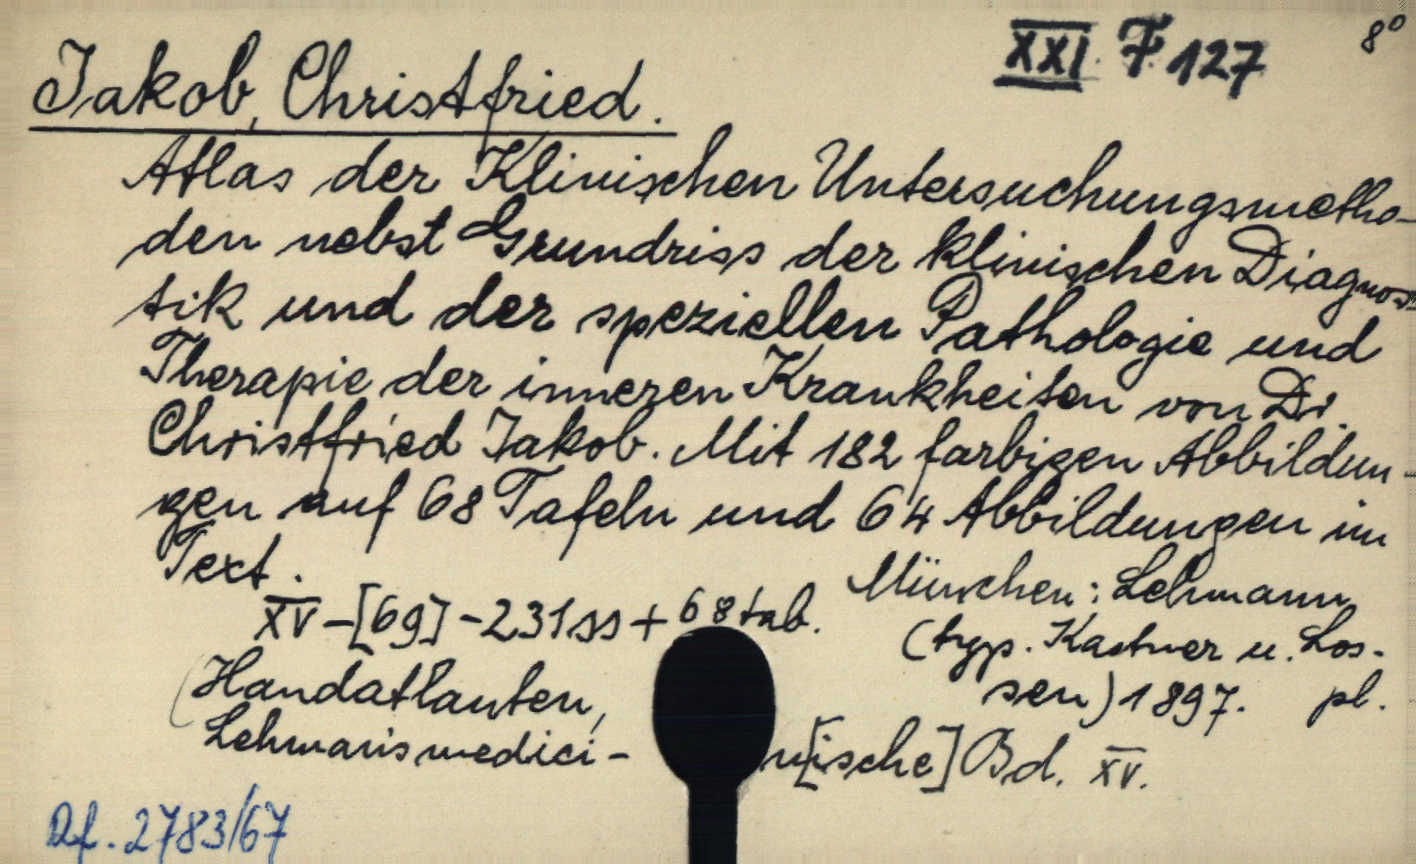 XXI. F. 127
8°
Jakob, Christfried.
Atlas der Klinischen Untersuchungsmetho-
den nebst Grundriss der klinischen Diagnos-
tik und der speziellen Pathologie und
Therapie der inneren Krankheiten von Dr.
Christfried Jakob. Mit 182 farbigen Abbildun-
gen auf 68 Tafeln und 64 Abbildungen im
Text.
München: Lehmann
XV-[69]-231 ss + 68 tab.
(typ. Kastner u. Los-
sen) 1897. pl.
(Handatlanten,
Lehmanns medici-n[ische] Bd. XV.
Df. 2783/67